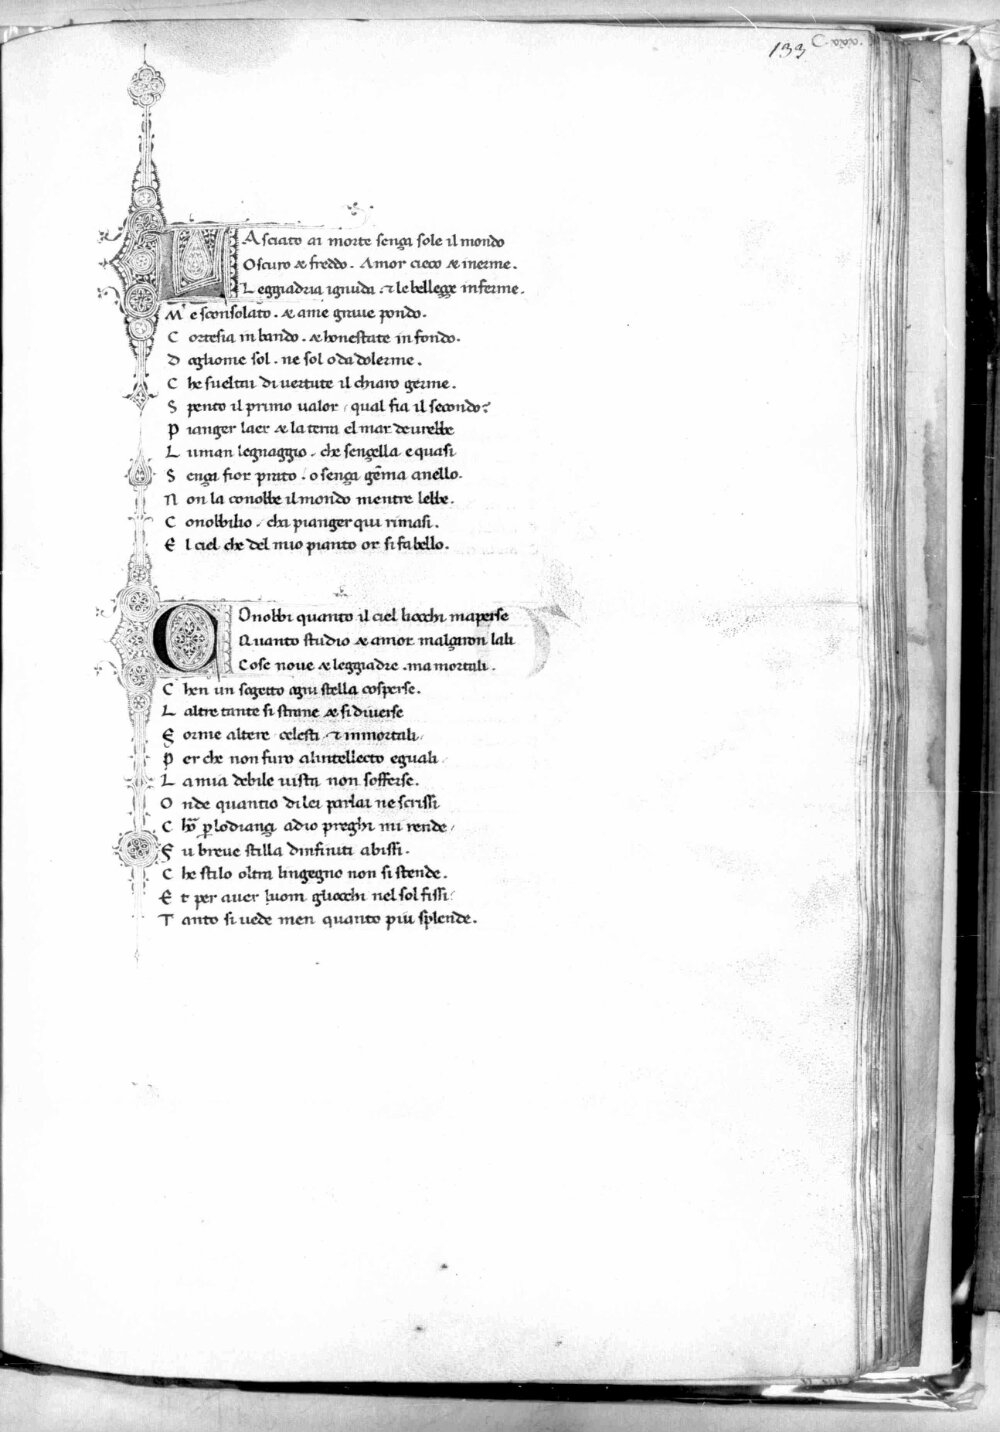 133 C. xxx.
LAsciato ai morte senza sole il mondo
Oscuro & freddo. Amor cieco & inerme.
Leggiadria ignuda. & le bellezze inferme.
Me sconsolato. & ame graue pondo.
Cortesia in bando. & honestate in fondo.
Dogliome sol. ne sol o da dolerme.
Che sueltai di uertute il chiaro germe.
Spento il primo ualor / qual fia il secondo?
Pianger laer & la terra el mar deurebbe
Luman legnaggio. che senzella e quasi
Senza fior prato. o senza gẽma anello.
Non la conobbe il mondo mentre lebbe.
Conobbilio / cha pianger qui rimasi.
El ciel che del mio pianto or si fa bello.
COnobbi quanto il ciel liocchi maperse
Quanto studio & amor malzaron lali
Cose noue & leggiadre. ma mortali.
Chen un sogetto ogni stella cosperse.
Laltre tante si strane & si diuerse
Forme altere celesti & immortali/
Per che non furo alintellecto eguali
La mia debile uista non sofferse.
Onde quantio di lei parlai ne scrissi
Chor ꝑ lodi anzi adio preghi mi rende/
Fu breue stilla dinfiniti abissi.
Che stilo oltra lingegno non si stende.
Et per auer luom gliocchi nel sol fissi/
Tanto si uede men quanto più splende.